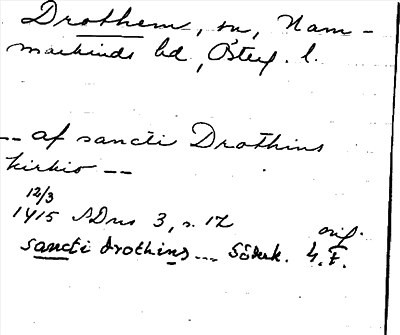 Drothem, sn, Ham-
markinds hd, Österg. l.
-- af sancti Drothins
kirkio --
12/3
1415 SDns 3, s. 12 orig.
sancti drothins --- Söderk. h. F.